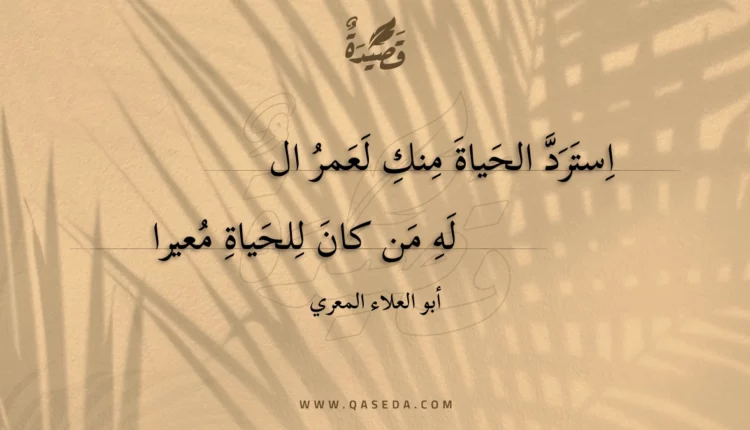 قَصِيْدَةٌ
اِستَرَدَّ الحَياةَ مِنكِ لَعَمرُ ال
لَهِ مَن كانَ لِلحَياةِ مُعيرا
أبو العلاء المعري
WWW.QASEDA.COM